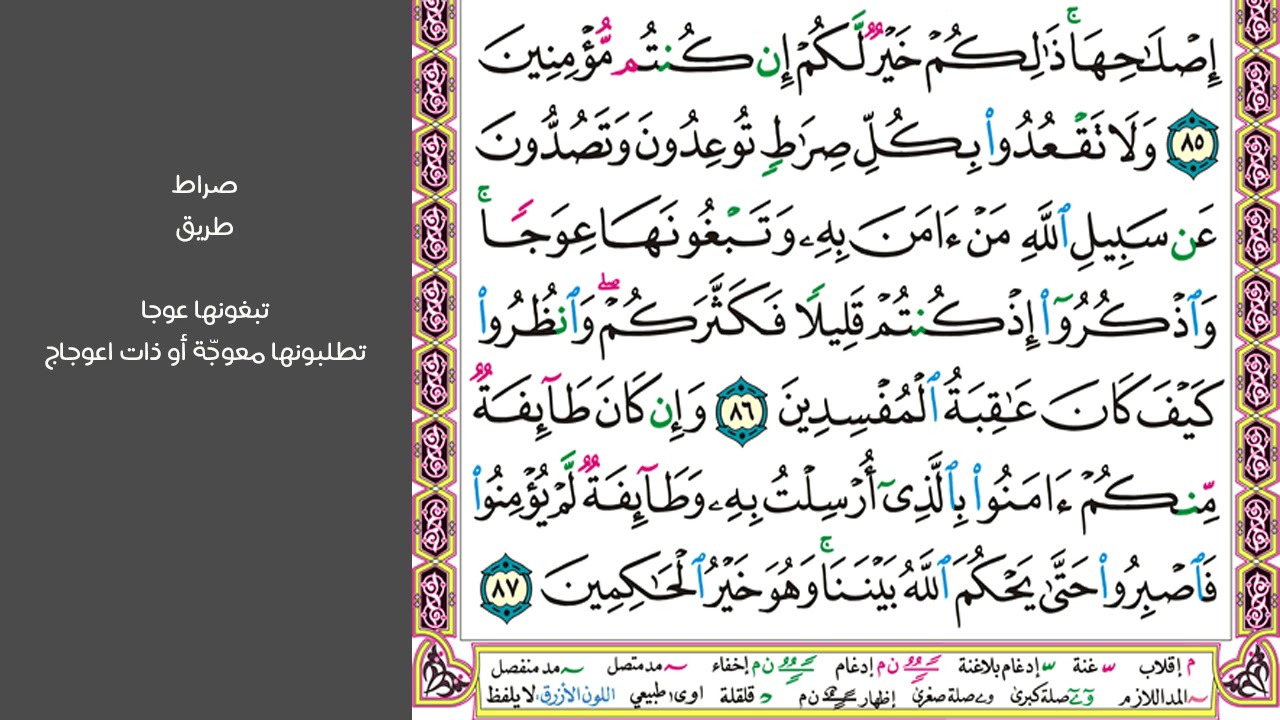 إِصْلَـٰحِهَا ۚ ذَٰلِكُمْ خَيْرٌ لَّكُمْ إِن كُنتُم مُّؤْمِنِينَ
٨٥ وَلَا تَقْعُدُوا۟ بِكُلِّ صِرَٰطٍ تُوعِدُونَ وَتَصُدُّونَ
عَن سَبِيلِ ٱللَّهِ مَنْ ءَامَنَ بِهِۦ وَتَبْغُونَهَا عِوَجًا ۚ
وَٱذْكُرُوٓا۟ إِذْ كُنتُمْ قَلِيلًا فَكَثَّرَكُمْ ۖ وَٱنظُرُوا۟
كَيْفَ كَانَ عَـٰقِبَةُ ٱلْمُفْسِدِينَ ٨٦ وَإِن كَانَ طَآئِفَةٌ
مِّنكُمْ ءَامَنُوا۟ بِٱلَّذِىٓ أُرْسِلْتُ بِهِۦ وَطَآئِفَةٌ لَّمْ يُؤْمِنُوا۟
فَٱصْبِرُوا۟ حَتَّىٰ يَحْكُمَ ٱللَّهُ بَيْنَنَا ۚ وَهُوَ خَيْرُ ٱلْحَـٰكِمِينَ ٨٧
م إقلاب غنة إدغام بلاغنة ن م إدغام ن م إخفاء مد متصل مد منفصل
المد اللازم صلة كبرى صلة صغرى إظهار ن م قلقلة اوى طبيعي اللون الأزرق لا يلفظ
صراط
طريق
تبغونها عوجا
تطلبونها معوجّة أو ذات اعوجاج